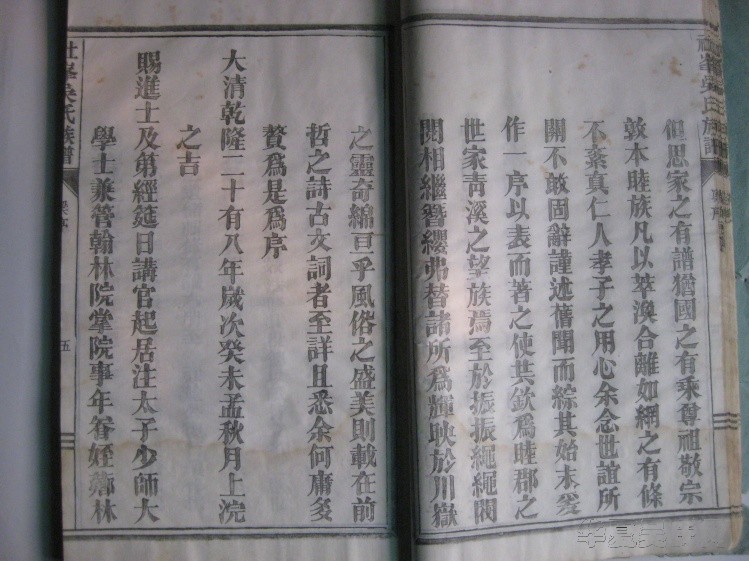 但思家之有譜猶國之有乘尊祖敬宗
敦本睦族凡以萃渙合離如網之有條
不紊真仁人孝子之用心余念世誼所
關不敢固辭謹述舊聞而綜其始末爰
作一序以表而著之使共欽為睦郡之
世家青溪之望族焉至於振振繩繩閥
閱相繼簪纓弗替諸所為輝映於川嶽
之靈奇綿亘乎風俗之盛美則載在前
哲之詩古文詞者至詳且悉余何庸多
贅為是為序
大清乾隆二十有八年歲次癸未孟秋月上浣
之吉
賜進士及第經筵日講官起居注太子少師大
學士兼管翰林院掌院事年眷姪薌林
社峯吳氏族譜
五